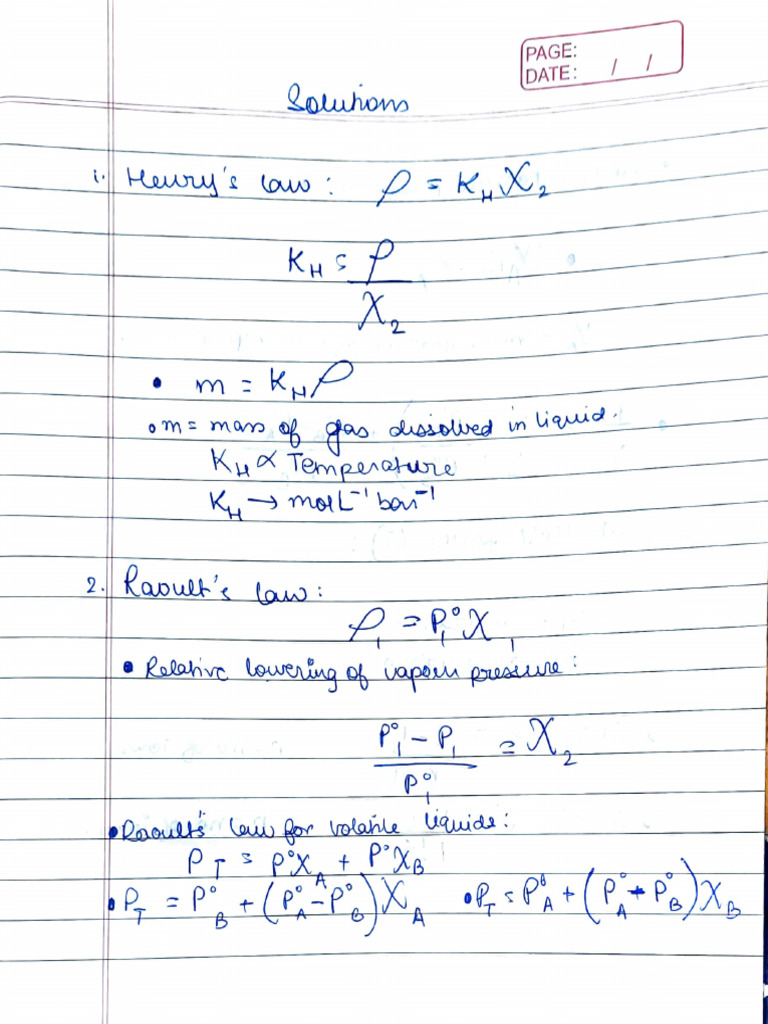 PAGE:
DATE: / /
Solutions
1. Henry's law: P = K_H X_2
K_H = P / X_2
• m = K_H P
• m = mass of gas dissolved in liquid.
K_H ∝ Temperature
K_H → mol L⁻¹ bar⁻¹
2. Raoult's law:
P_1 = P_1° X_1
• Relative lowering of vapour pressure:
(P_1° - P_1) / P_1° = X_2
• Raoult's law for volatile liquids:
P_T = P°_A X_A + P° X_B
• P_T = P°_B + (P°_A - P°_B) X_A • P_T = P°_A + (P°_A - P°_B) X_B